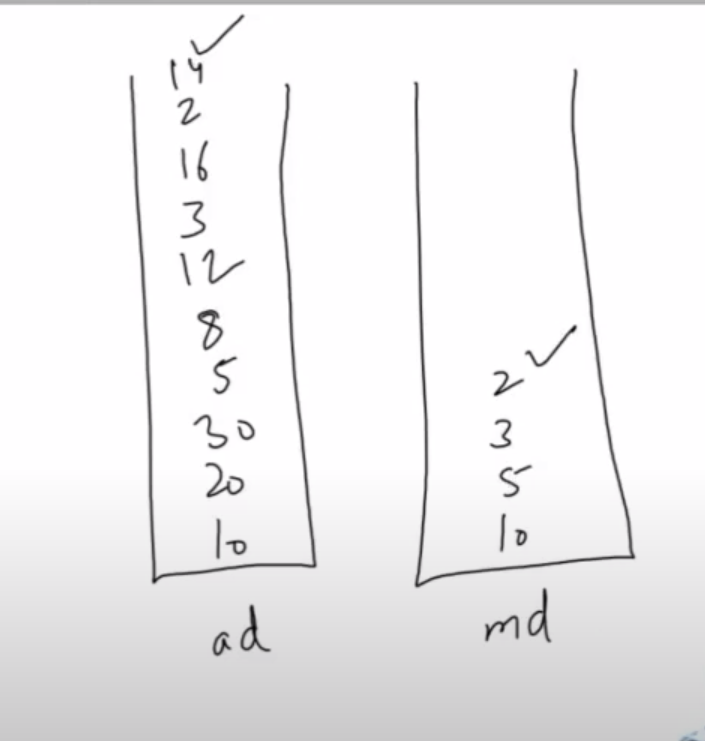 14
2
16
3
12
8
5
30
20
10
ad
2
3
5
10
md